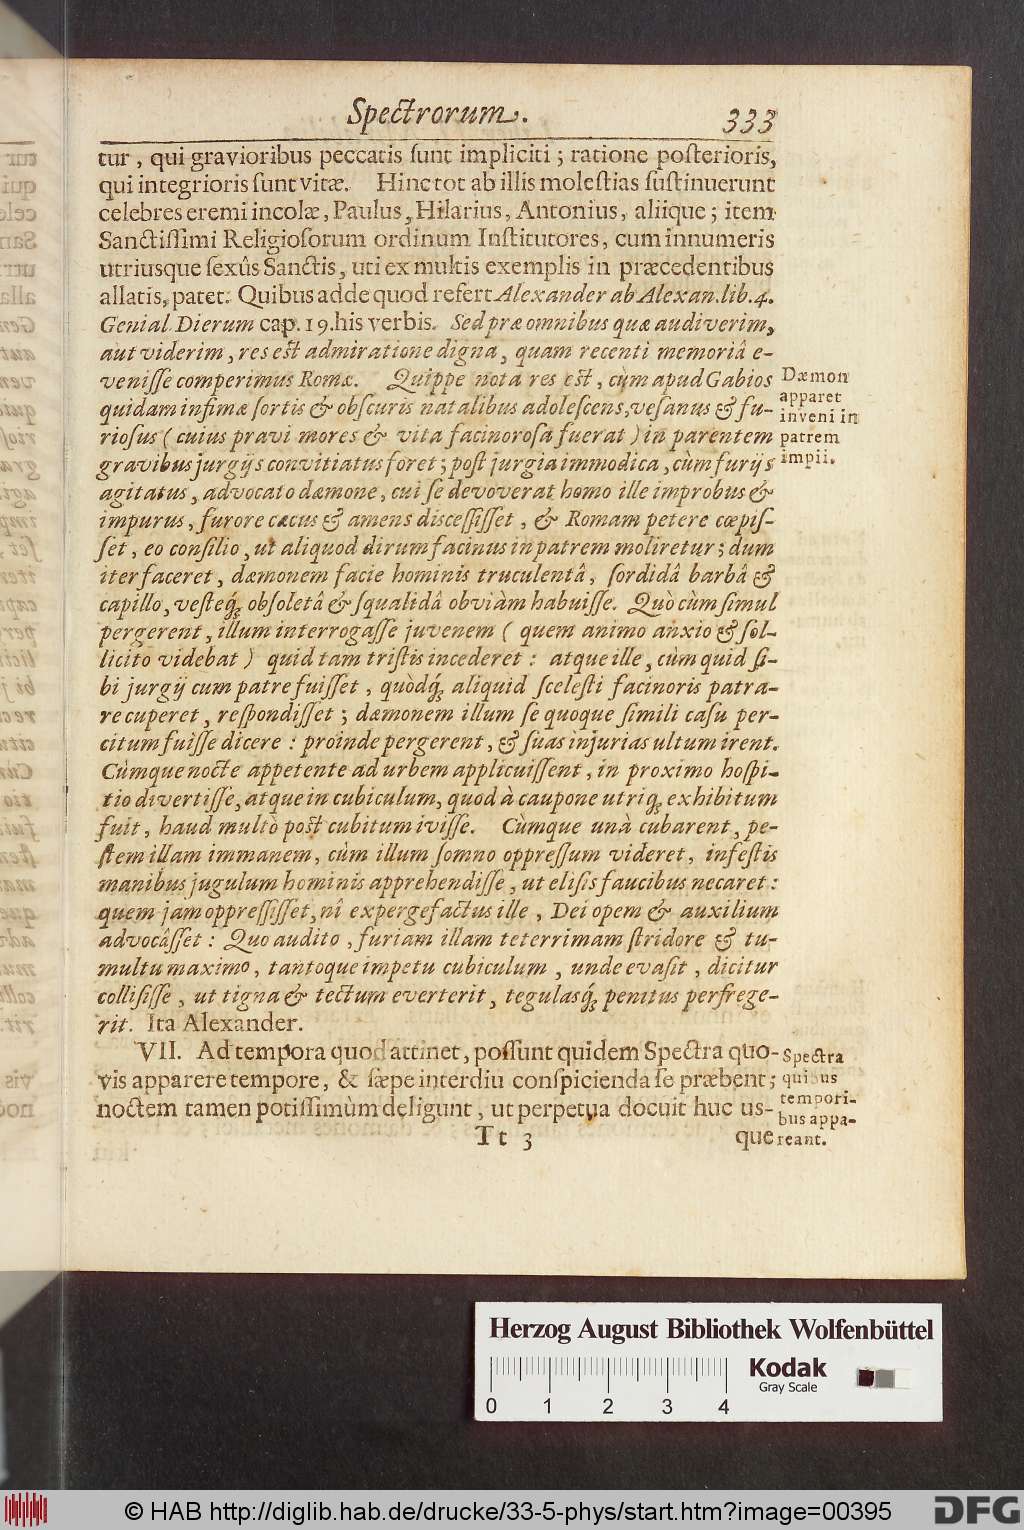 Spectrorum. 333
tur, qui gravioribus peccatis ſunt impliciti; ratione poſterioris,
qui integrioris ſunt vitæ. Hinc tot ab illis moleſtias ſuſtinuerunt
celebres eremi incolæ, Paulus, Hilarius, Antonius, aliique; item
Sanctiſſimi Religioſorum ordinum Inſtitutores, cum innumeris
utriusque ſexûs Sanctis, uti ex multis exemplis in præcedentibus
allatis, patet. Quibus adde quod refert Alexander ab Alexan. lib. 4.
Genial Dierum cap. 19. his verbis. Sed præ omnibus quæ audiverim,
aut viderim, res eſt admiratione digna, quam recenti memoriâ e-
veniſſe comperimus Romæ. Quippe nota res eſt, cùm apud Gabios
quidam infimæ ſortis & obſcuris natalibus adoleſcens, veſanus & fu-
rioſus (cuius pravi mores & vita facinoroſa fuerat) in parentem
gravibus jurgijs convitiatus foret; poſt jurgia immodica, cùm furijs
agitatus, advocato dæmone, cui ſe devoverat homo ille improbus &
impurus, furore cæcus & amens disceſſiſſet, & Romam petere cœpiſ-
ſet, eo conſilio, ut aliquod dirum facinus in patrem moliretur; dum
iter faceret, dæmonem facie hominis truculentâ, ſordidâ barbâ &
capillo, veſteq́; obſoletâ & ſqualidâ obviàm habuiſſe. Quò cùm ſimul
pergerent, illum interrogaſſe juvenem (quem animo anxio & ſol-
licito videbat) quid tam triſtis incederet: atque ille, cùm quid ſi-
bi jurgij cum patre fuiſſet, quòdq́; aliquid sceleſti facinoris patra-
re cuperet, reſpondiſſet; dæmonem illum ſe quoque ſimili caſu per-
citum fuiſſe dicere: proinde pergerent, & ſuas injurias ultum irent.
Cùmque nocte appetente ad urbem applicuiſſent, in proximo hoſpi-
tio divertiſſe, atque in cubiculum, quod à caupone utriq; exhibitum
fuit, haud multò poſt cubitum iviſſe. Cùmque unà cubarent, pe-
ſtem illam immanem, cùm illum ſomno oppreſſum videret, infeſtis
manibus jugulum hominis apprehendiſſe, ut eliſis faucibus necaret:
quem jam oppreſſiſſet, nî expergefactus ille, Dei opem & auxilium
advocâſſet: Quo audito, furiam illam teterrimam ſtridore & tu-
multu maximo, tantoque impetu cubiculum, unde evaſit, dicitur
colliſiſſe, ut tigna & tectum everterit, tegulasq́; penitus perfrege-
rit. Ita Alexander.
VII. Ad tempora quod attinet, poſſunt quidem Spectra quo-
vis apparere tempore, & ſæpe interdiu conſpicienda ſe præbent;
noctem tamen potiſſimùm deligunt, ut perpetua docuit huc us-
Tt 3 que
Dæmon
apparet
inveni in
patrem
impii.
Spectra
quibus
tempori-
bus appa-
reant.
Herzog August Bibliothek Wolfenbüttel
Kodak
Gray Scale
0 1 2 3 4
© HAB http://diglib.hab.de/drucke/33-5-phys/start.htm?image=00395
DFG